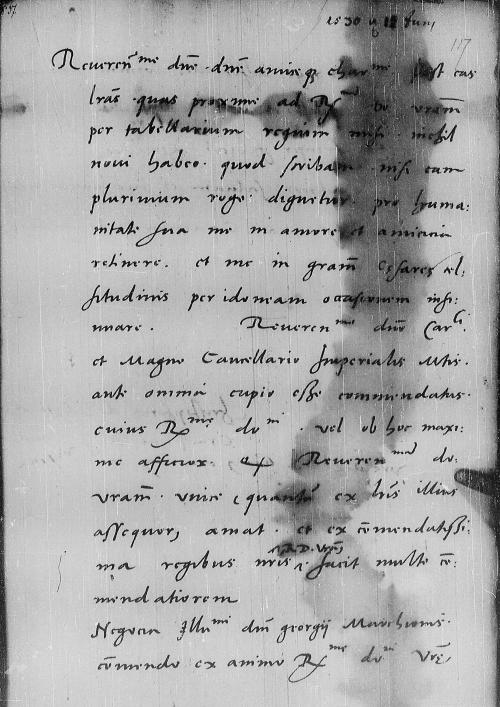 1530 12 Junij
117
Reveren^me dne dne amiceq char^me post eas
lrās quas proxime ad R^m do vram
per tabellarium regium misi nihil
novi habeo quod scribam nisi eam
plurimum rogo dignetur pro huma:
nitate sua me in amore et amicicia
retinere. et me in gram Cesaree cel:
situdinis per idoneam occasionem insi:
nuare. Reveren^mo dno Car^li
et Magno Cancellario Imperialis Mtis
ante omnia cupio esse commendatus
cuius R^me do^ni vel ob hoc maxi:
me afficior Reveren^mam do:
vram unice quantum ex lris illius
assequor, amat et ex comendatissi:
ma regibus nris R. D. Vram facit multo co:
mendatiorem
Negocia Illu^mi dni georgij Marchionis
comendo ex animo R^me do^ni Vre,